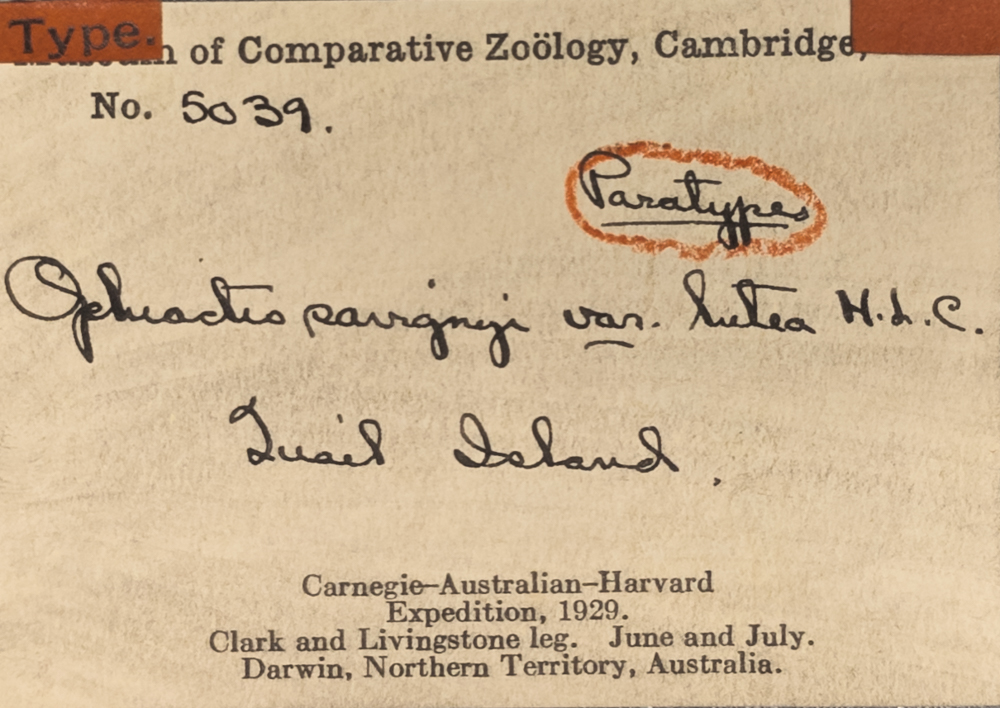 Type.
Museum of Comparative Zoölogy, Cambridge,
No. 5039.
Paratypes
Ophiactis savignyi var. lutea H.L.C.
Quail Island.
Carnegie—Australian—Harvard
Expedition, 1929.
Clark and Livingstone leg. June and July.
Darwin, Northern Territory, Australia.